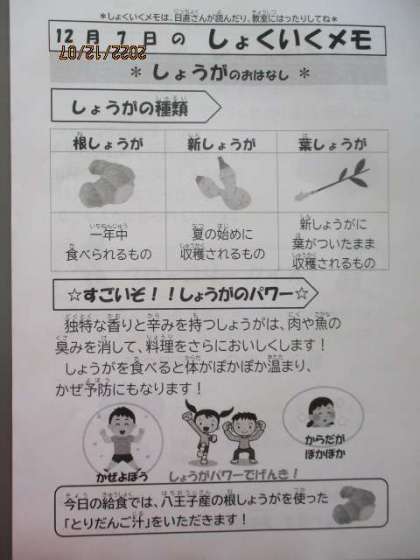 ＊しょくいくメモは、日直さんが読んだり、教室にはったりしてね＊
12月7日の しょくいくメモ
2022/12/07
＊ しょうがのおはなし ＊
しょうがの種類
根しょうが 新しょうが 葉しょうが
一年中
食べられるもの
夏の始めに
収穫されるもの
新しょうがに
葉がついたまま
収穫されるもの
☆すごいぞ！！しょうがのパワー☆
独特な香りと辛みを持つしょうがは、肉や魚の
臭みを消して、料理をさらにおいしくします！
しょうがを食べると体がぽかぽか温まり、
かぜ予防にもなります！
かぜよぼう
しょうがパワーでげんき！
からだが
ぽかぽか
今日の給食では、八王子産の根しょうがを使った
「とりだんご汁」をいただきます！